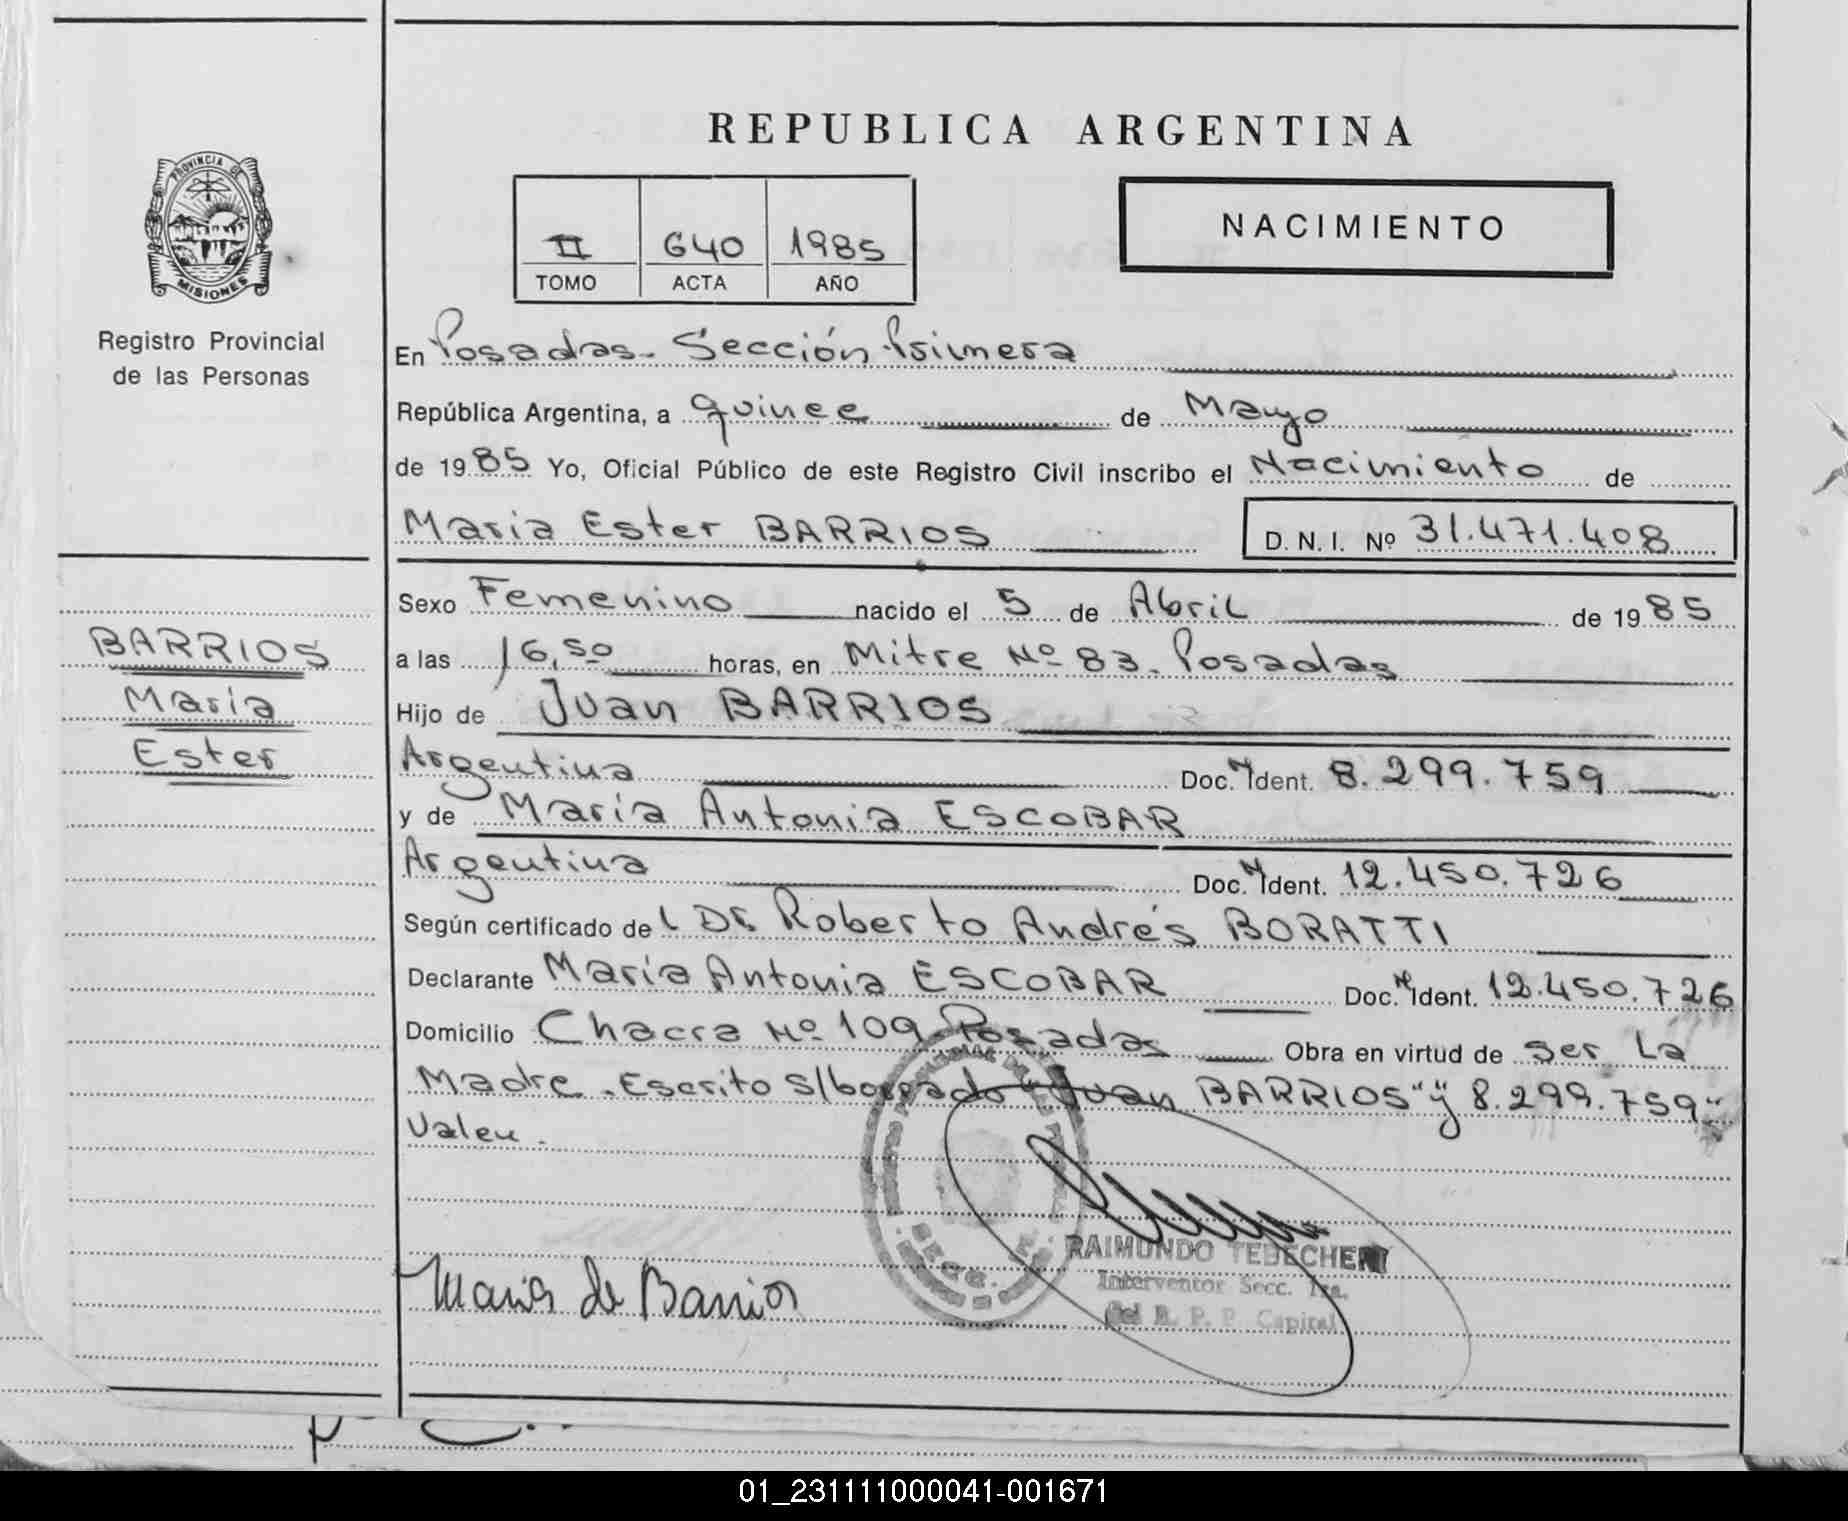 REPUBLICA ARGENTINA
PROVINCIA DE
MISIONES
Registro Provincial
de las Personas
II 640 1985
TOMO ACTA AÑO
NACIMIENTO
En Posadas- Sección Primera
República Argentina, a quince de Mayo
de 1985 Yo, Oficial Público de este Registro Civil inscribo el Nacimiento de
Maria Ester BARRIOS D. N. I. Nº 31.471.408
BARRIOS
María
Ester
Sexo Femenino nacido el 5 de Abril de 1985
a las 16,50 horas, en Mitre Nº 83. Posadas
Hijo de Juan BARRIOS
Argentina Doc. N Ident. 8.299.759
y de María Antonia ESCOBAR
Argentina Doc. N Ident. 12.450.726
Según certificado del Dr. Roberto Andrés BORATTI
Declarante María Antonia ESCOBAR Doc. N Ident. 12.450.726
Domicilio Chacra Nº 109-Posadas Obra en virtud de ser La
Madre.-Escrito s/borrado "Juan BARRIOS" y "8.299.759"
Valen.-
RAIMUNDO TEBECHERI
Interventor Secc. 1ra.
del R. P. P. Capital
Maria de Barrios
01_231111000041-001671